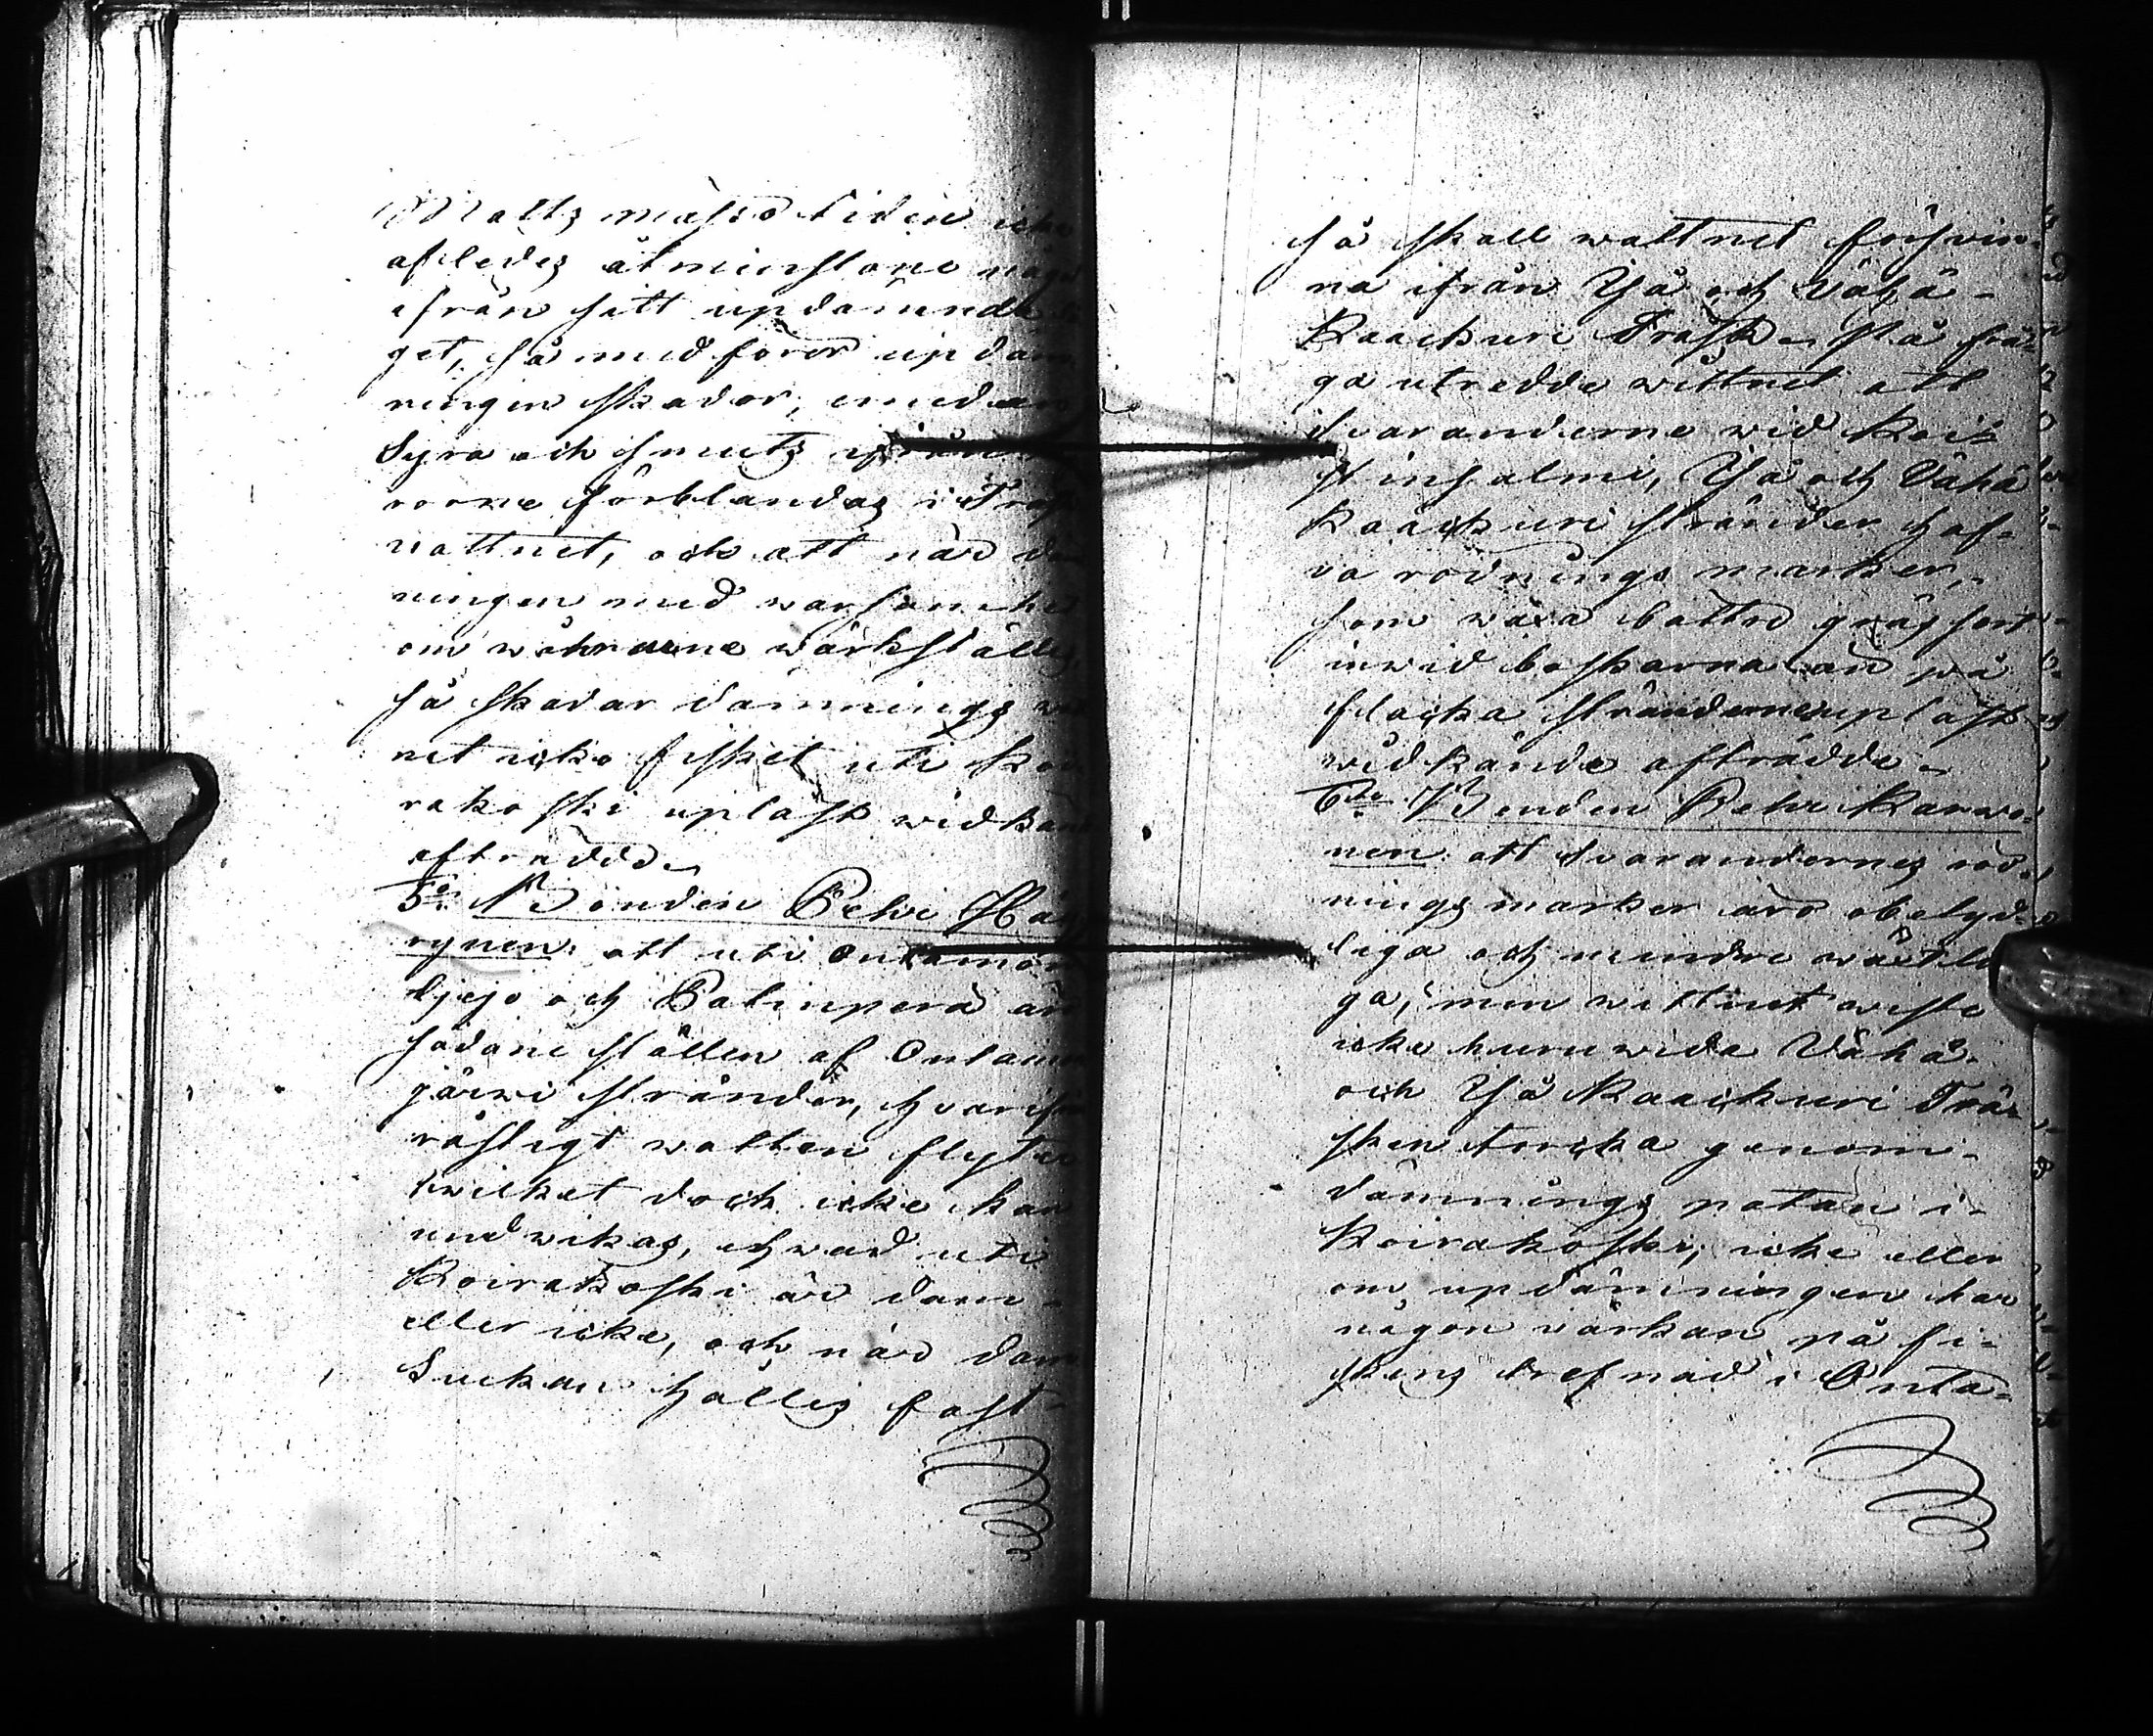 Mattsmässo tiden icke
afledes åtminstone något
ifrån sitt updammde
get, så medförer updäm
ningen skador, emedan
Syra och smuts ifrån
rorne förblandas i Träsk
vattnet, och att när däm
ningen med varsamhet
om wåhrarne wärkställes,
så skadar dämnings wat
net icke fisket uti Koi
rakoski upläst widkänd
afträdde.
5o Bonden Pehr Häy
rynen: att uti Ontamon
Ljejo och Palinperä är
sådane ställen af Ontamo
järwi stränder, hvarifrån
rösligt watten flyter
hwilket doch icke kan
undvikas, ehwad uti
Koirakoski är dam
eller icke, och när dam
Luckan hålles fast
så skall wattnet försvin-
na ifrån Yjä och Vähä-
Kaackuri Träsk. På frå-
ga utredde wittnet att
Svaranderne wid Kois
tinsalmi, Yjä och Vähä
Kaackuri stränder haf-
va rödnings marker,
som wäxa bättre gräs sort
inwid bäckarna än på
flacka stränderne upläst
widkände afträdde.
6to Bonden Pehr Karwo-
nen: att Svarandernes röd-
nings marker äro obetyd-
liga och mindre wäxtli
ga, men wittnet wiste
icke huruwida Vähä-
och Yjä Kaackuri Trä-
sken torcka genom
dämnings patan i
Koirakoski, icke eller
om updämningen har
någon wärkan på fi-
skens trefnad i Onta-